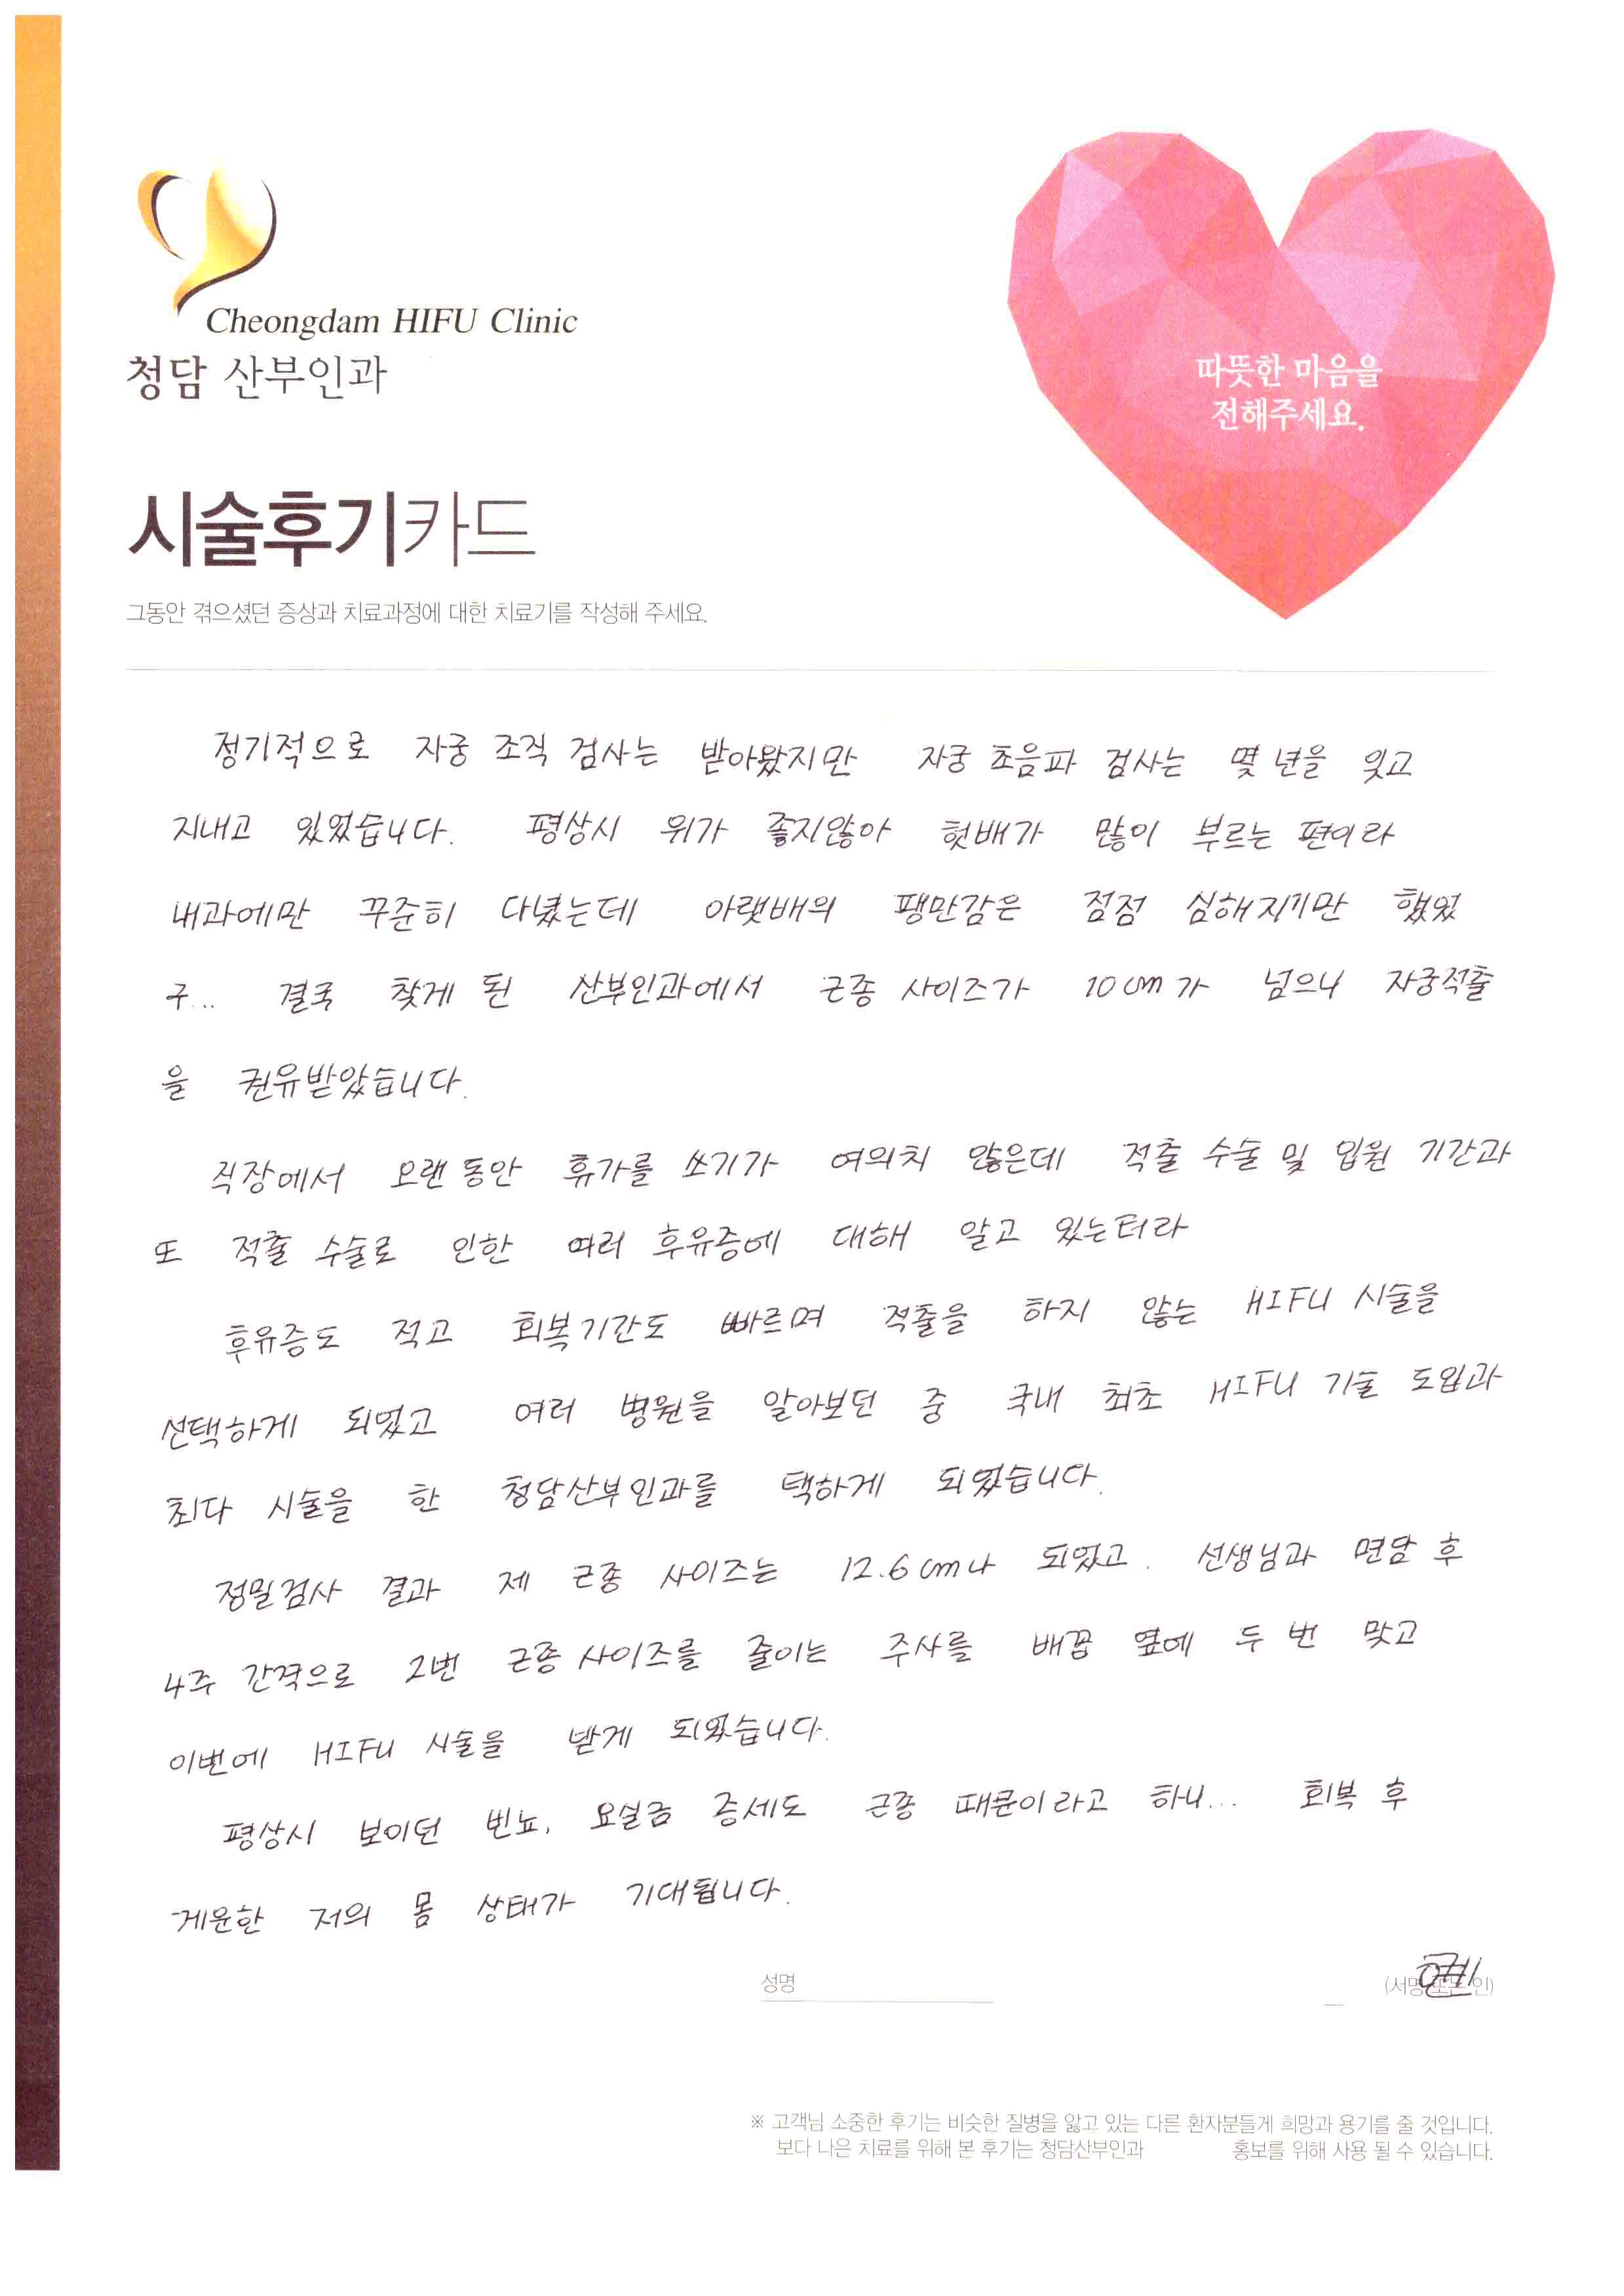 Cheongdam HIFU Clinic
청담 산부인과
따뜻한 마음을
전해주세요.
시술후기카드
그동안 겪으셨던 증상과 치료과정에 대한 치료기를 작성해 주세요.
정기적으로 자궁 조직 검사는 받아왔지만 자궁 초음파 검사는 몇 년을 잊고
지내고 있었습니다. 평상시 위가 좋지않아 헛배가 많이 부르는 편이라
내과에만 꾸준히 다녔는데 아랫배의 팽만감은 점점 심해지기만 했었
구... 결국 찾게 된 산부인과에서 근종 사이즈가 10cm가 넘으니 자궁적출
을 권유받았습니다.
직장에서 오랜 동안 휴가를 쓰기가 여의치 않은데 적출 수술 및 입원 기간과
또 적출 수술로 인한 여러 후유증에 대해 알고 있는터라
후유증도 적고 회복기간도 빠르며 적출을 하지 않는 HIFU 시술을
선택하게 되었고 여러 병원을 알아보던 중 국내 최초 HIFU 기술 도입과
최다 시술을 한 청담산부인과를 택하게 되었습니다.
정밀검사 결과 제 근종 사이즈는 12.6cm나 되었고. 선생님과 면담 후
4주 간격으로 2번 근종 사이즈를 줄이는 주사를 배꼽 옆에 두 번 맞고
이번에 HIFU 시술을 받게 되었습니다.
평상시 보이던 빈뇨, 요실금 증세도 근종 때문이라고 하니... 회복 후
게운한 저의 몸 상태가 기대됩니다.
성명 (서명 또는 인)
※ 고객님 소중한 후기는 비슷한 질병을 앓고 있는 다른 환자분들게 희망과 용기를 줄 것입니다.
보다 나은 치료를 위해 본 후기는 청담산부인과 홍보를 위해 사용 될 수 있습니다.